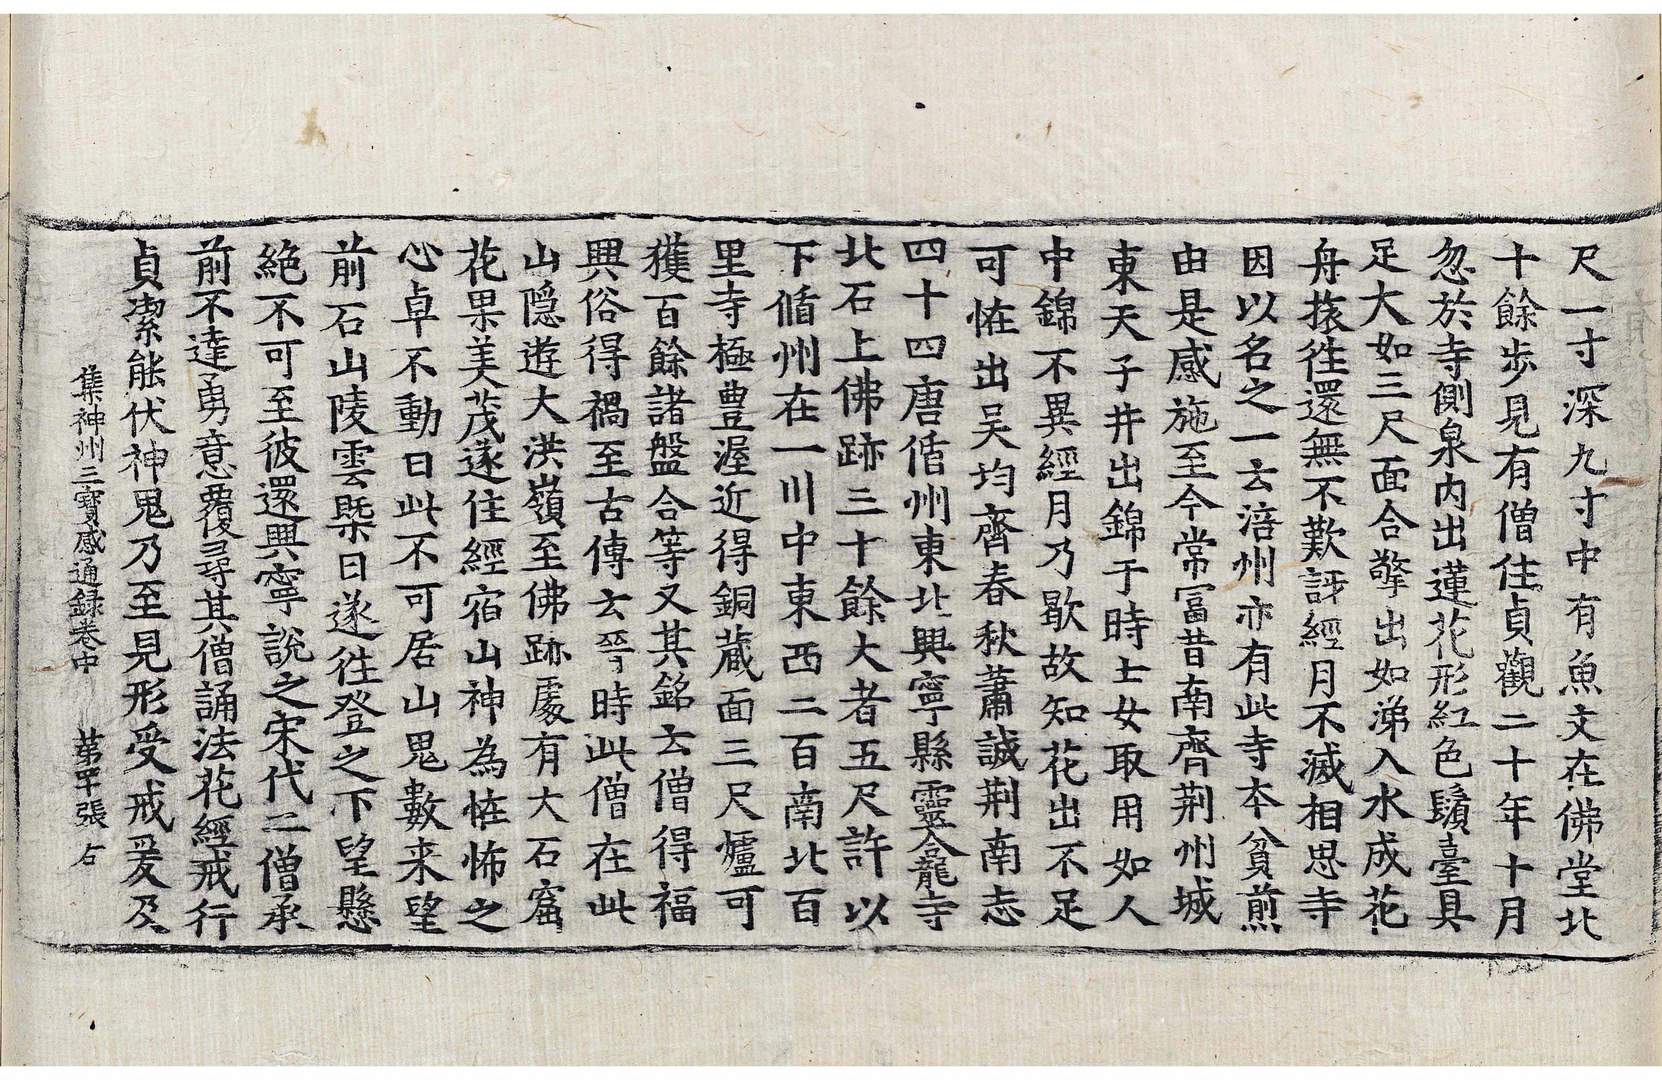 尺一寸深九寸中有魚文在佛堂北
十餘步見有僧住貞觀二十年十月
忽於寺側泉內出蓮花形紅色鬚臺具
足大如三尺面合擎出如涕入水成花
舟挨徃還無不歎訝經月不滅相思寺
因以名之一云涪州亦有此寺本貧煎
由是感施至今常冨昔南齊荆州城
東天子井出錦于時士女取用如人
中錦不異經月乃歇故知花出不足
可恠出吳均齊春秋蕭誠荆南志
四十四唐循州東北興寧縣靈合龍寺
北石上佛跡三十餘大者五尺許以
下循州在一川中東西二百南北百
里寺極豊渥近得銅蔵面三尺爐可
獲百餘諸盤合等又其銘云僧得福
興俗得禍至古傳云晉時此僧在此
山隱遊大洪嶺至佛跡處有大石窟
花果美茂遂住經宿山神為恠怖之
心卓不動曰此不可居山鬼數来望
前石山陵雲槩日遂徃登之下望懸
絶不可至彼還興寧說之宋代二僧承
前不達勇意覆後尋其僧誦法花經戒行
貞潔能伏神鬼乃至見形受戒爰及
集神州三寶感通録卷中 第平張 右